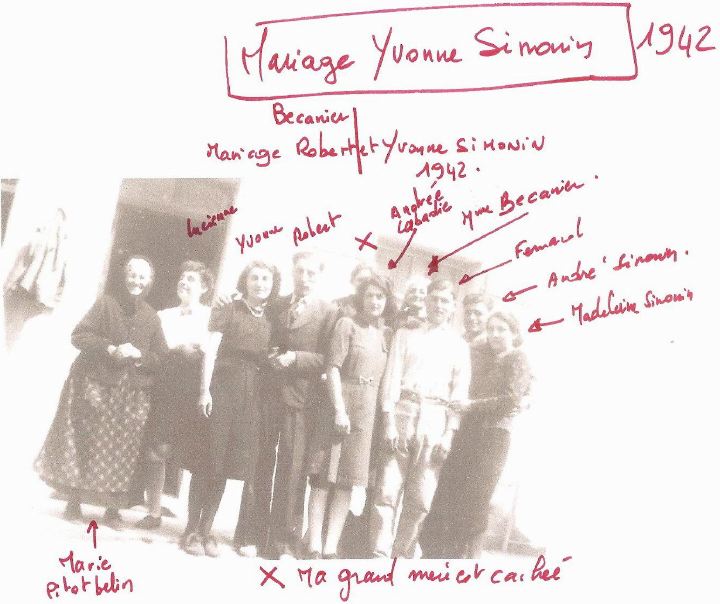 Mariage Yvonne Simonin 1942
Becanier
Mariage Robert et Yvonne SIMONIN
1942.
Andrée
Labadie
Mme Becanier.
Lucienne
Yvonne
Robert
X
Fernand
André Simonin.
Madeleine Simonin
Marie
Pitotbelin
X Ma grand mère est cachée